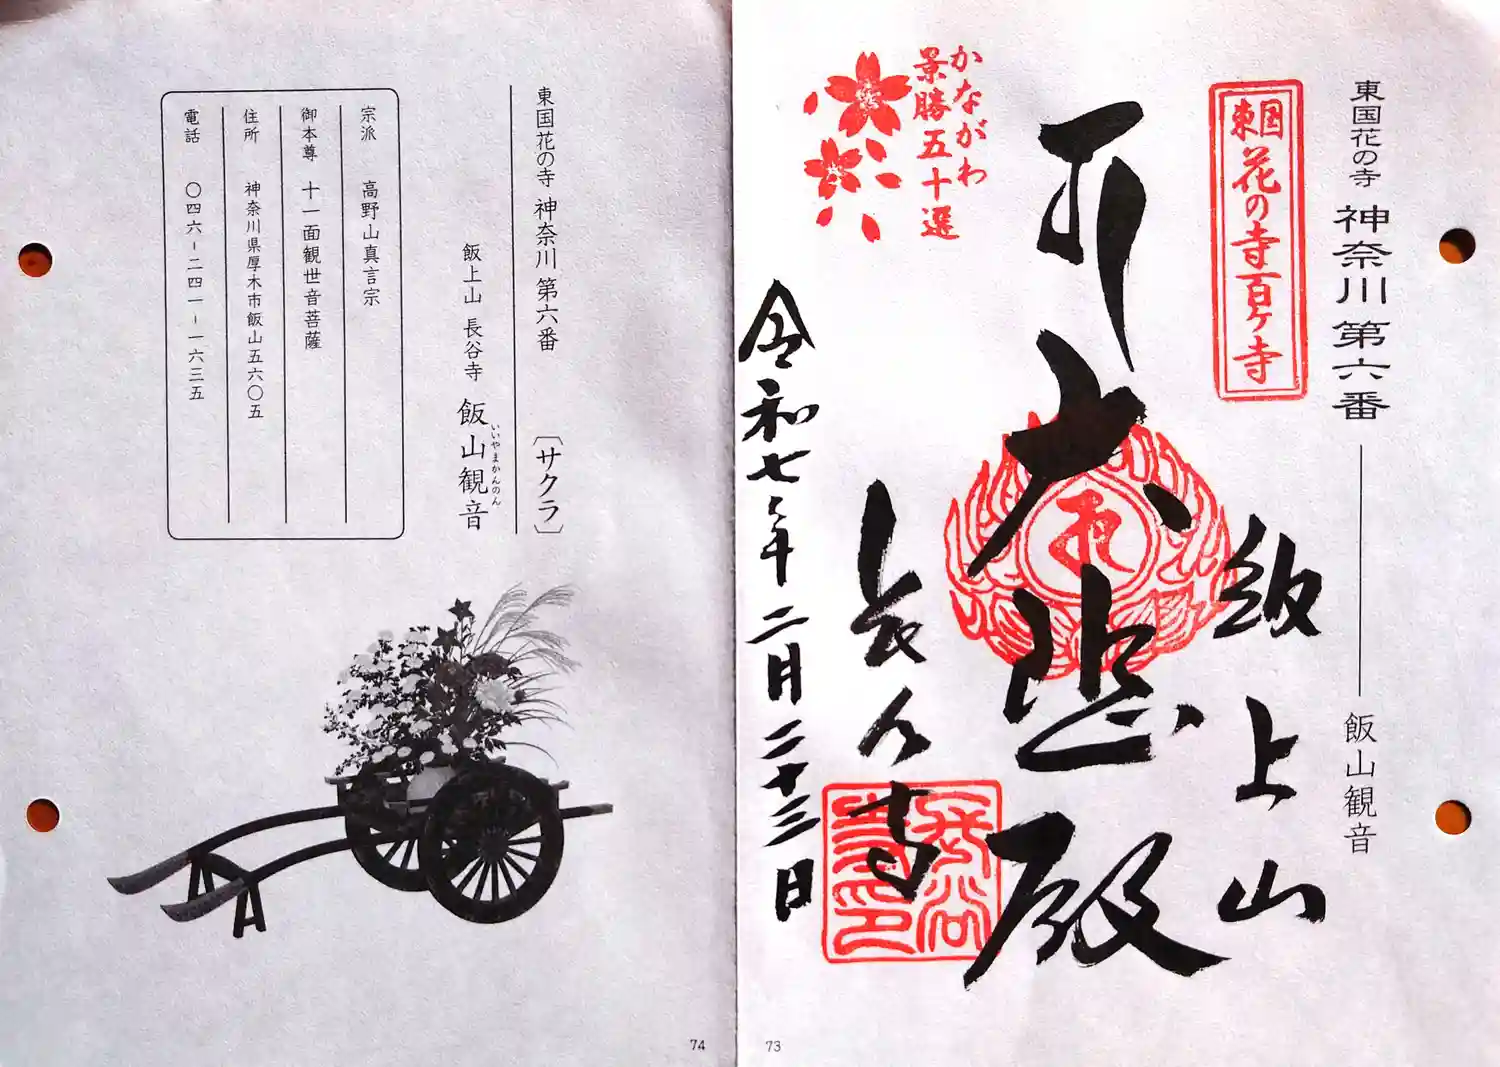 東国花の寺 神奈川 第六番 飯山観音
東国花の寺百ヶ寺
かながわ
景勝五十選
飯上山
大悲殿
長谷寺
令和七年二月二十三日
73
東国花の寺 神奈川 第六番 〔サクラ〕
飯上山 長谷寺 飯山観音
いいやまかんのん
宗派 高野山真言宗
御本尊 十一面観世音菩薩
住所 神奈川県厚木市飯山五六〇五
電話 〇四六-二四一-一六三五
74